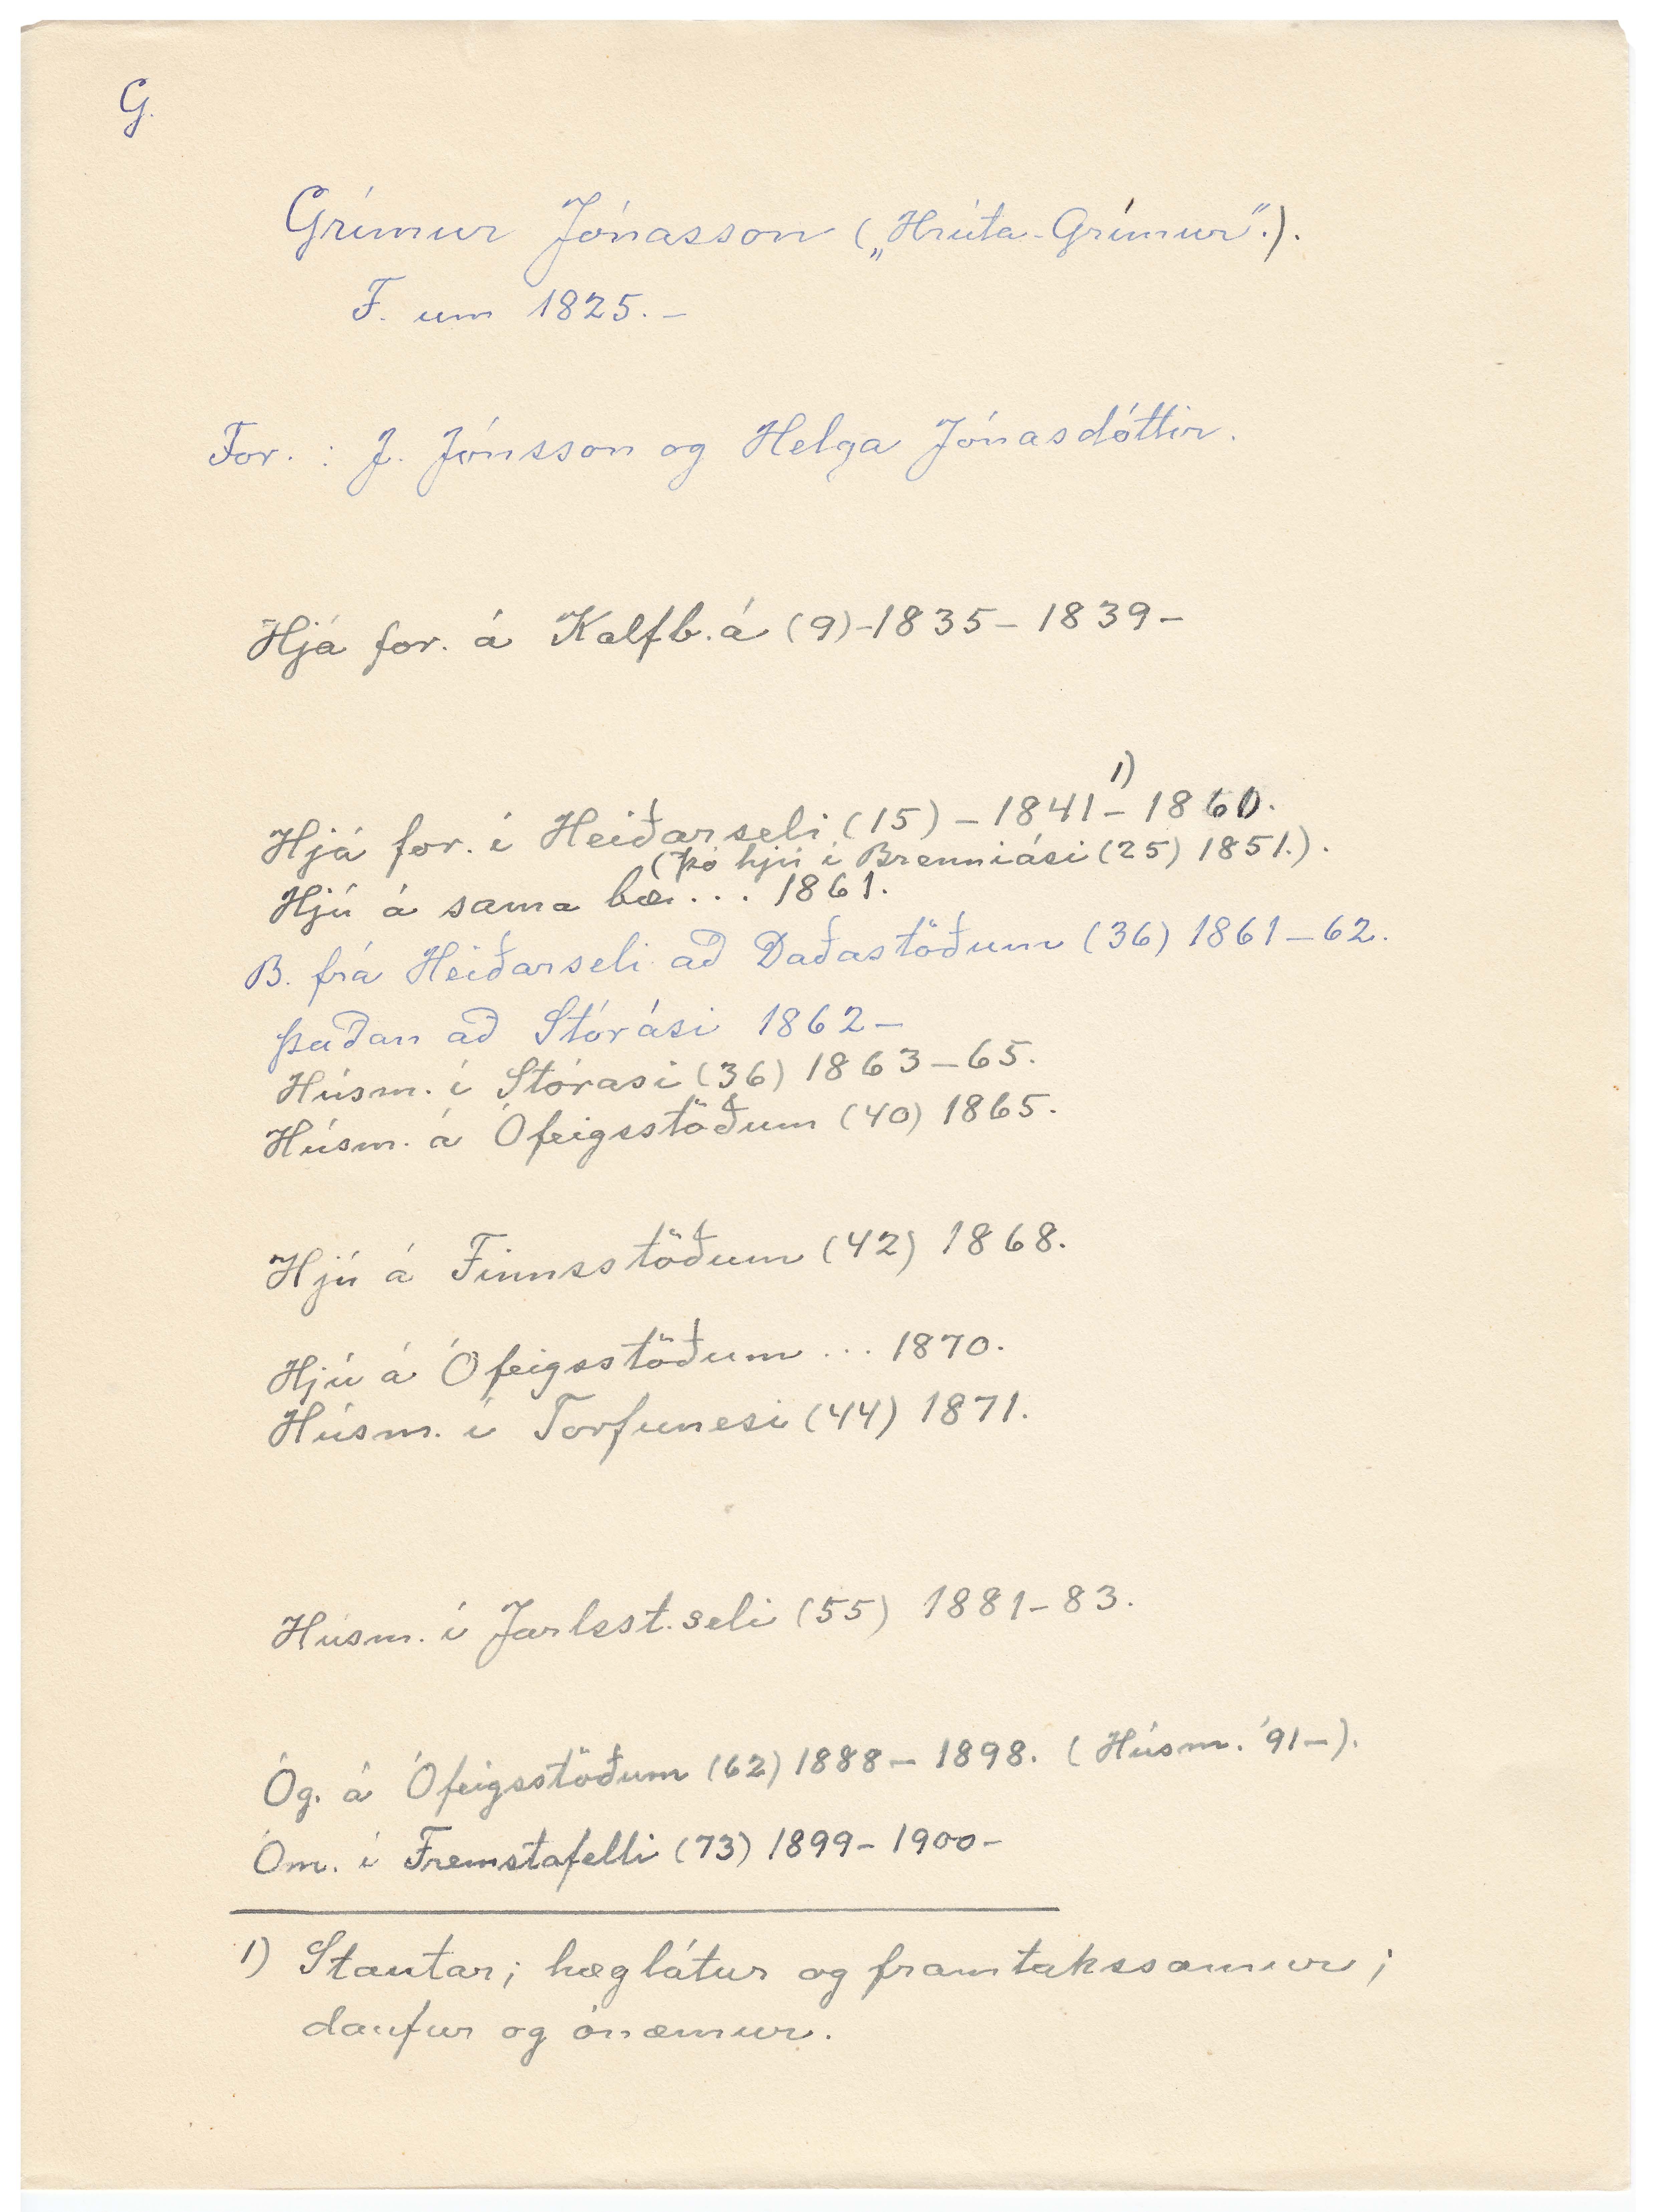 G.
Grímur Jónasson („Hrúta-Grímur”.).
F. um 1825. –
For. : J. Jónsson og Helga Jónasdóttir.
Hjá for. á Kalfb.á (9)-1835 – 1839 –
Hjá for. í Heiðarseli (15) – 1841 –¹⁾ 1860.
(þó hjú í Brenniási (25) 1851.).
Hjú á sama bæ... 1861.
B. frá Heiðarseli að Daðastöðum (36) 1861–62.
þaðan að Stórási 1862 –
Húsm. í Stórasi (36) 1863–65.
Húsm. á Ófeigsstöðum (40) 1865.
Hjú á Finnsstöðum (42) 1868.
Hjú á Ófeigsstöðum ... 1870.
Húsm. í Torfunesi (44) 1871.
Húsm. í Jarlsst.seli (55) 1881–83.
Óg. á Ófeigsstöðum (62) 1888 – 1898. (Húsm. '91–).
Óm. í Fremstafelli (73) 1899 – 1900 –
1) Stautar; hæglátur og framtakssamur;
daufur og ónæmur.